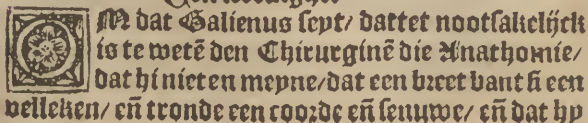 OM dat Galienus seyt/ dattet nootsakelijck
is te wetē den Chirurginē die Anathomie/
dat hi niet en meyne/dat een breet bant si een
velleken/ eñ tronde een coorde eñ senuwe/ eñ dat hy